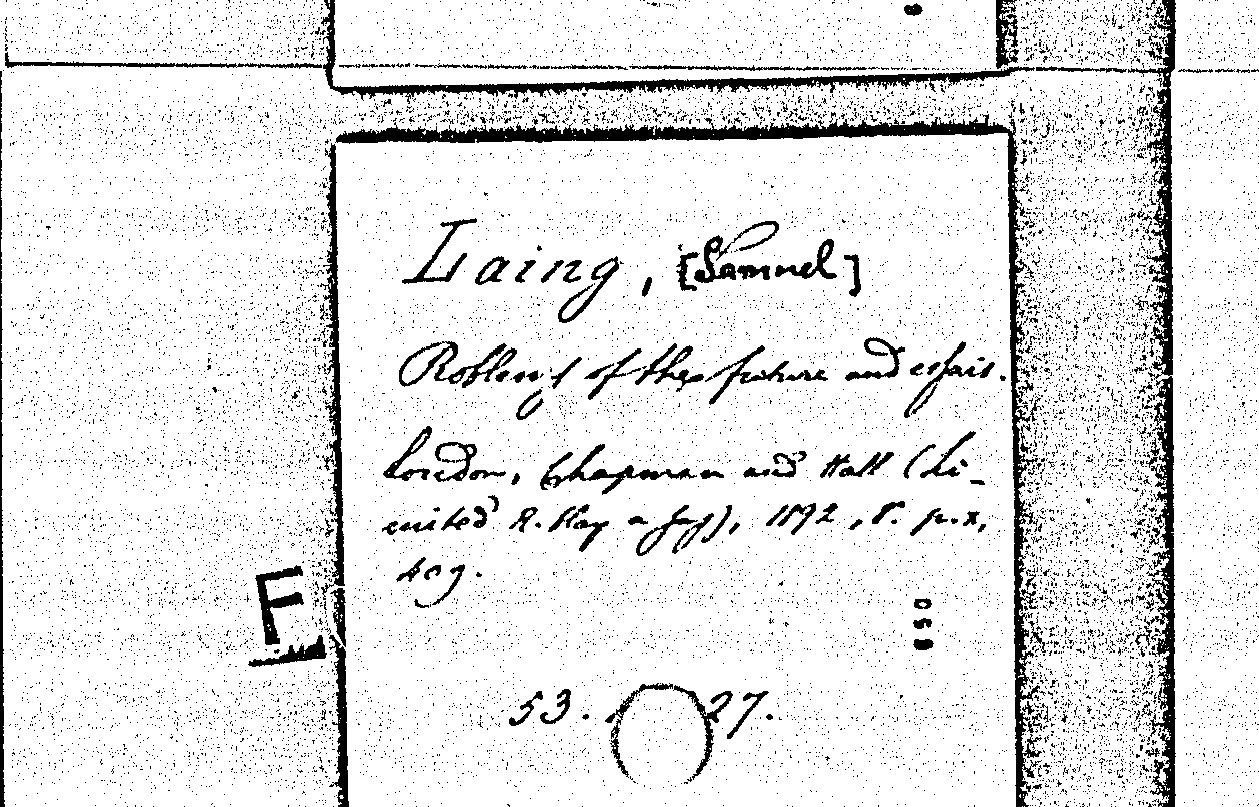 Laing, [Samuel]
of the future and essais.
London, Chapman and Hall (Li-
mited R. Clay a. , 1892, 8°. p. x,
409.
F
53. 27.